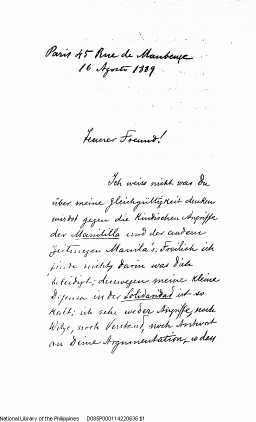 Paris 45 Rue de Maubeuge
16 Agosto 1889
Teuerer Freund!
Ich weiss nicht was Du
über meine Gleichgültigkeit denken
wirst gegen die kindischen Angriffe
der Manililla und der andern
Zeitungen Manila's. Freilich ich
finde nichts darin was Dich
beleidigt; deswegen meine kleine
Defensa in der Solidaridad ist so
kalt; ich sehe weder Angriffe, noch
Witze, noch Verstand, noch Antwort
an Deine Argumentation, so dass
National Library of the Philippines